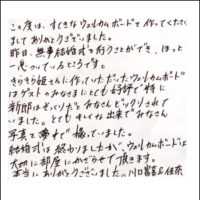 この度は、すてきなウェルカムボードを作ってください
ましてありがとうございました。
昨日、無事結婚式を行うことができ、ほっと
一息ついているところです。
きらきら姫さんに作っていただいたウェルカムボード
はゲストのみなさまにとても好評で特に
新郎はそっくりだとみなさんビックリされて
いました。とてもキレイな出来でみなさん
写真を撮っていました。
結婚式は終わりましたが、ウェルカムボードは
大切に部屋にかざらせて頂きます。
本当にありがとうございました。川口